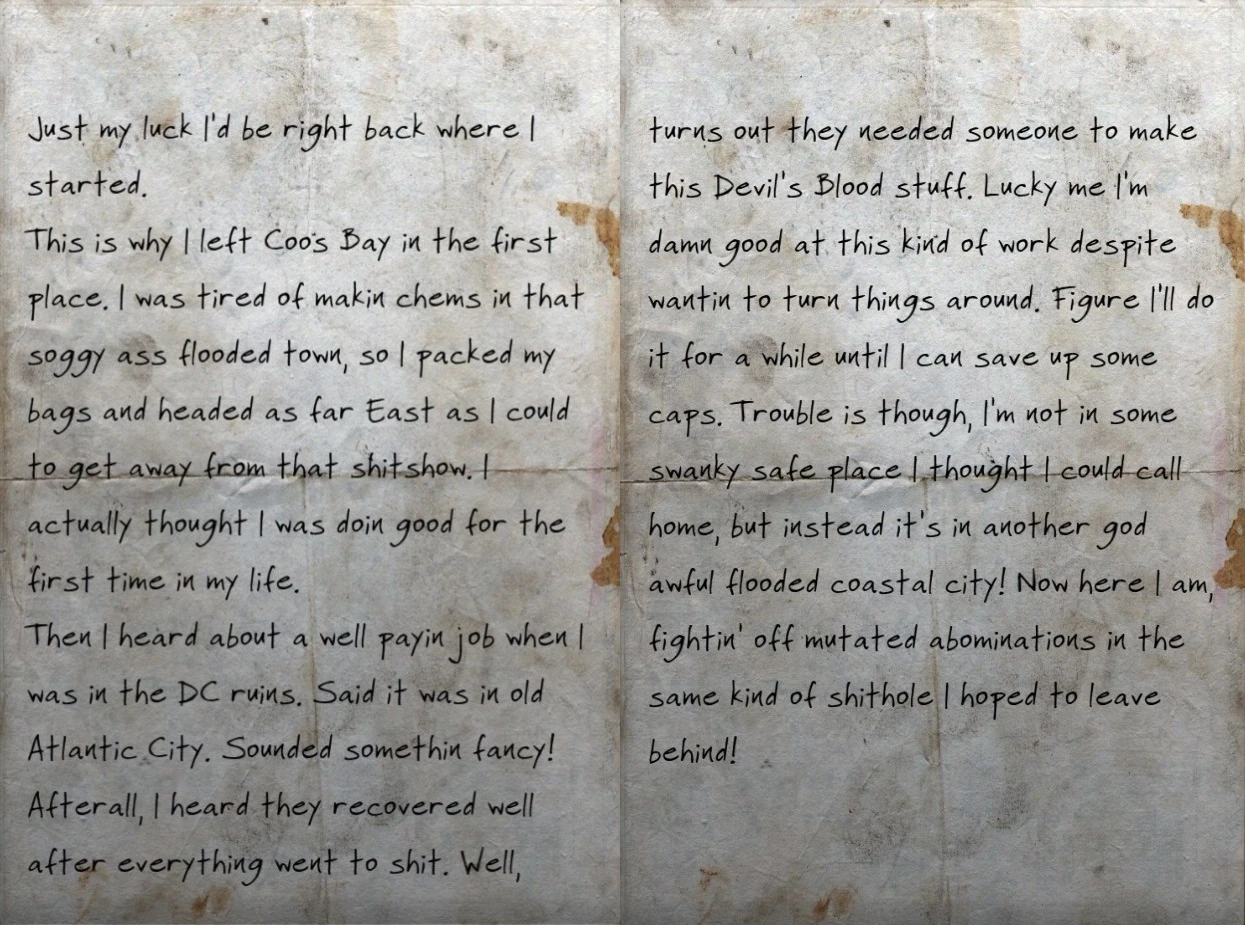 Just my luck I'd be right back where I
started.
This is why I left Coos Bay in the first
place. I was tired of makin chems in that
soggy ass flooded town, so I packed my
bags and headed as far East as I could
to get away from that shitshow. I
actually thought I was doin good for the
first time in my life.
Then I heard about a well payin job when I
was in the DC ruins. Said it was in old
Atlantic City. Sounded somethin fancy!
Afterall, I heard they recovered well
after everything went to shit. Well,
turns out they needed someone to make
this Devil's Blood stuff. Lucky me I'm
damn good at this kind of work despite
wantin to turn things around. Figure I'll do
it for a while until I can save up some
caps. Trouble is though, I'm not in some
swanky safe place I thought I could call
home, but instead it's in another god
awful flooded coastal city! Now here I am,
fightin' off mutated abominations in the
same kind of shithole I hoped to leave
behind!